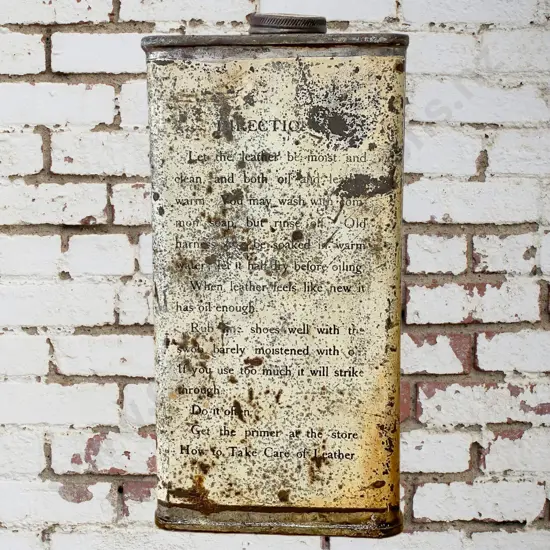 DIRECTIONS
Let the leather be moist and
clean, and both oil and leather
warm. You may wash with com-
mon soap, but rinse off. Old
harness may be soaked in warm
water; let it half dry before oiling.
When leather feels like new it
has oil enough.
Rub fine shoes well with the
swob barely moistened with oil.
If you use too much it will strike
through.
Do it often.
Get the primer at the store
How to Take Care of Leather